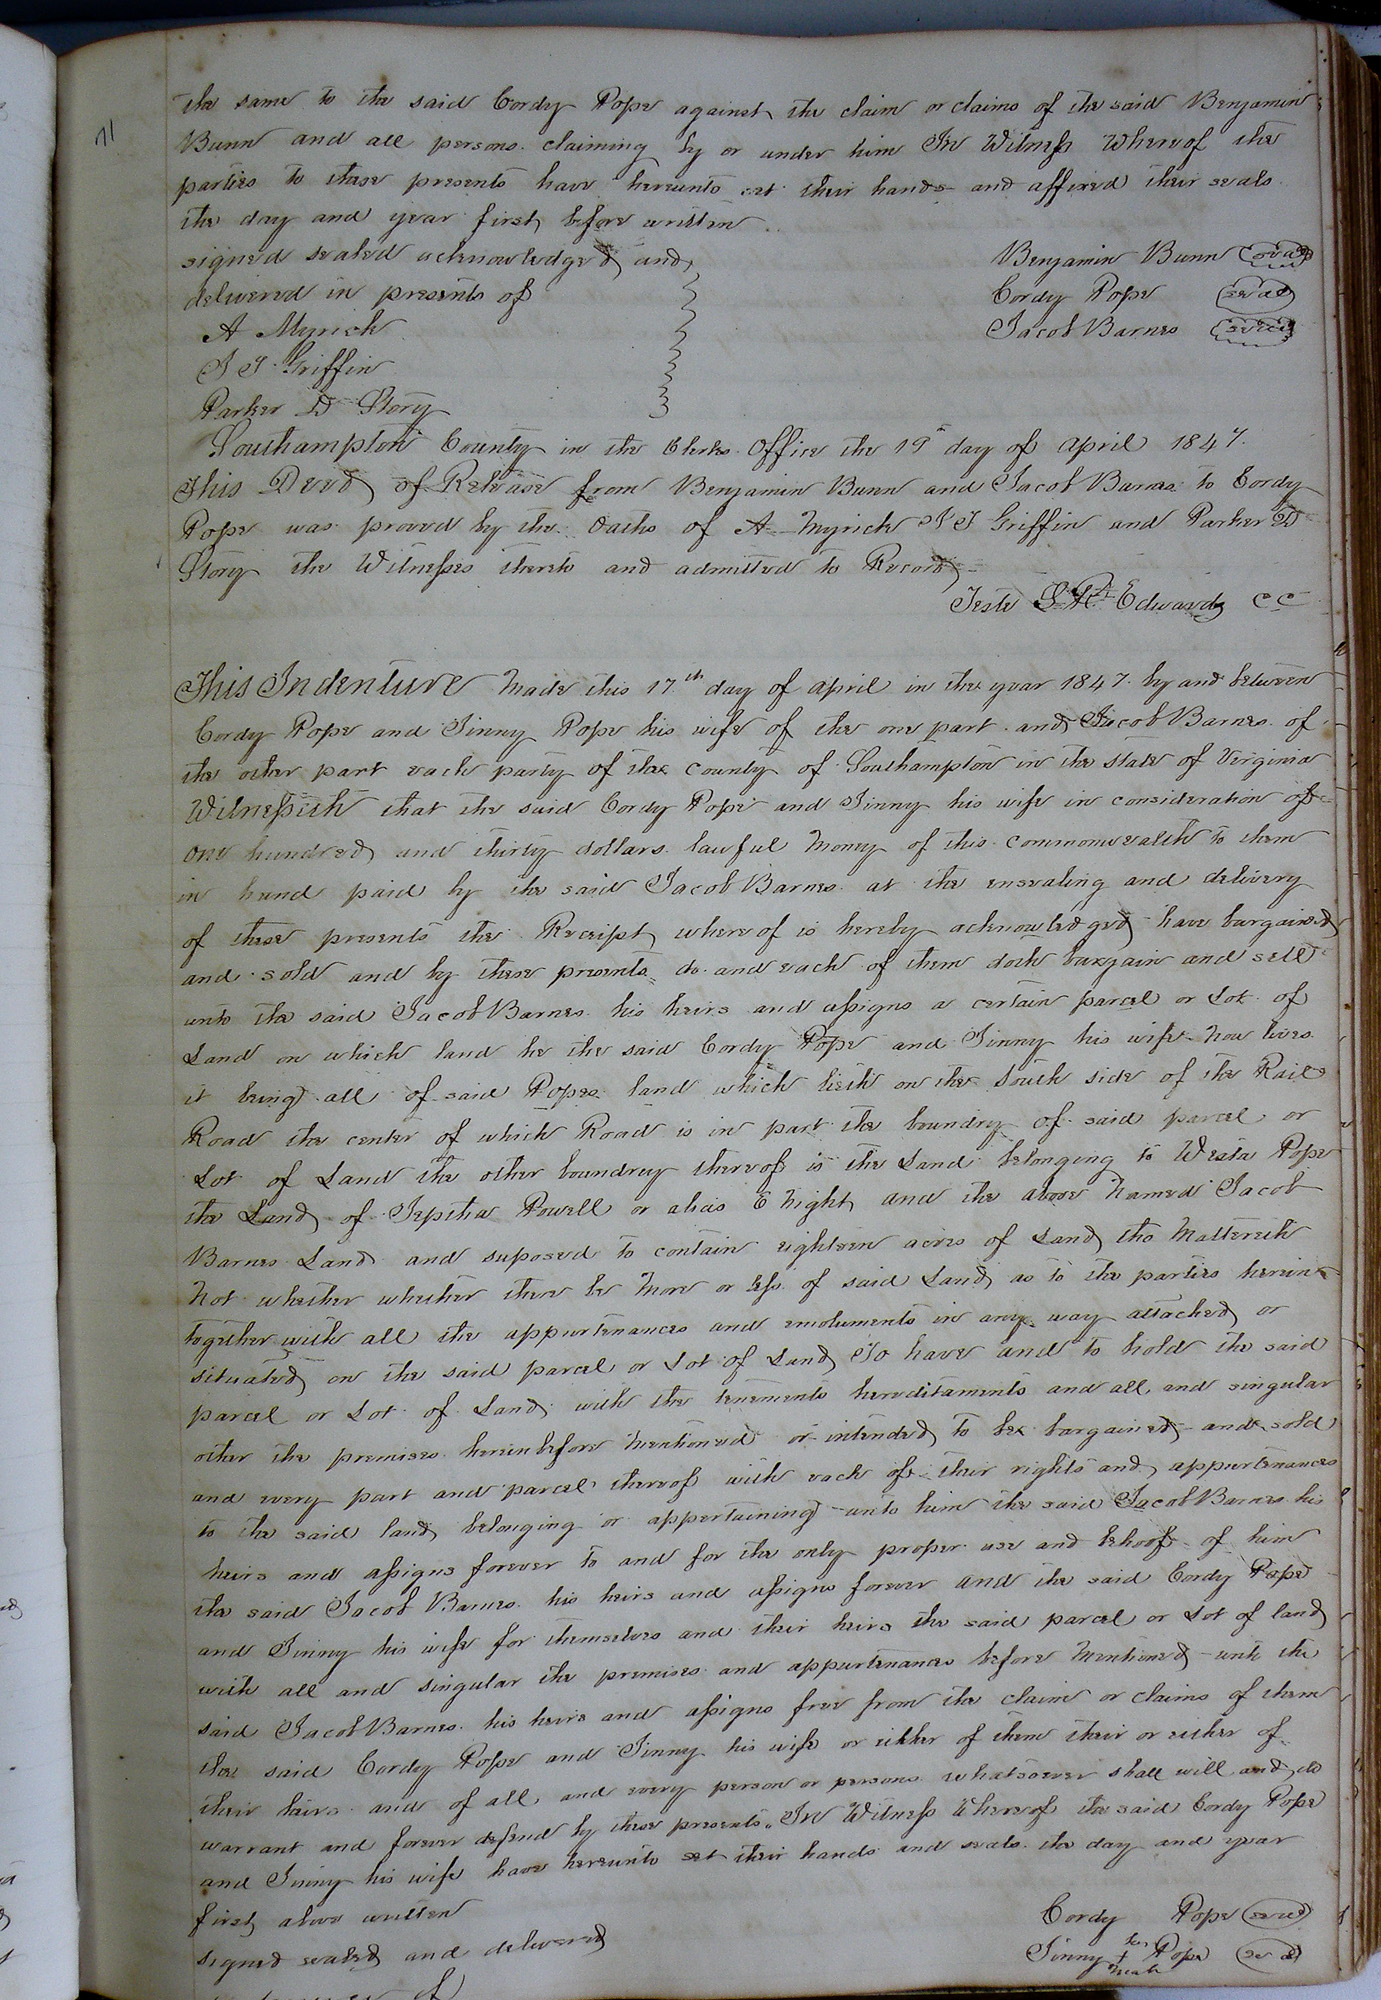 71
the same to the said Cordy Pope against the claim or claims of the said Benjamin
Bunn and all persons claiming by or under him In Witness Whereof the
parties to these presents have hereunto set their hands and affixed their seals
the day and year first before written
signed sealed acknowledged and
delivered in presents of
A Myrick
J J Griffin
Parker D Story
Benjamin Bunn seal
Cordy Pope seal
Jacob Barnes seal
Southampton County in the Clerks Office the 19th day of April 1847.
This Deed of Release from Benjamin Bunn and Jacob Barnes to Cordy
Pope was proved by the Oaths of A Myrick J J Griffin and Parker D
Story the Witnesses thereto and admitted to Record
Teste L. R. Edwards CC
This Indenture Made this 17th day of April in the year 1847 by and between
Cordy Pope and Jinny Pope his wife of the one part and Jacob Barnes of
the other part each party of the county of Southampton in the state of Virginia
Witnesseth that the said Cordy Pope and Jinny his wife in consideration of
one hundred and thirty dollars lawful Money of this commonwealth to them
in hand paid by the said Jacob Barnes at the ensealing and delivery
of these presents the Receipt where of is hereby acknowledged have bargained
and sold and by these presents do and each of them doth bargain and sell
unto the said Jacob Barnes his heirs and assigns a certain parcel or Lot of
Land on which land he the said Cordy Pope and Jinny his wife Now lives
it being all of said Popes land which lieth on the South side of the Rail
Road the center of which Road is in part the boundry of said parcel or
Lot of Land the other boundrey thereof is the Land belonging to Westa Pope
the Land of Jeptha Powell or alias E Night and the above Named Jacob
Barnes Land and suposed to contain eighteen acres of Land tho Mattereth
Not whether whether there be More or less of said Land as to the parties herein
together with all the appurtenances and emoluments in any way attached or
situated on the said parcel or Lot of Land To have and to hold the said
parcel or Lot of Land with the tenements hereditaments and all and singular
other the premises herein before Mentioned or intended to be bargained and sold
and every part and parcel thereof with each of their rights and appurtenances
to the said land belonging or appertaining unto him the said Jacob Barnes his
heirs and assigns forever to and for the only proper use and behoof of him
the said Jacob Barnes his heirs and assigns forever and the said Cordy Pope
and Jinny his wife for themselves and their heirs the said parcel or Lot of land
with all and singular the premises and appurtenances before Mentioned unto the
said Jacob Barnes his heirs and assigns free from the claim or claims of them
the said Cordy Pope and Jinny his wife or either of them their or either of
their heirs and of all and every person or persons whatsoever shall will and do
warrant and forever defend by these presents. In Witness Whereof the said Cordy Pope
and Jinny his wife have hereunto set their hands and seals the day and year
first above written
signed sealed and delivered
Cordy Pope seal
Jinny her + mark Pope seal